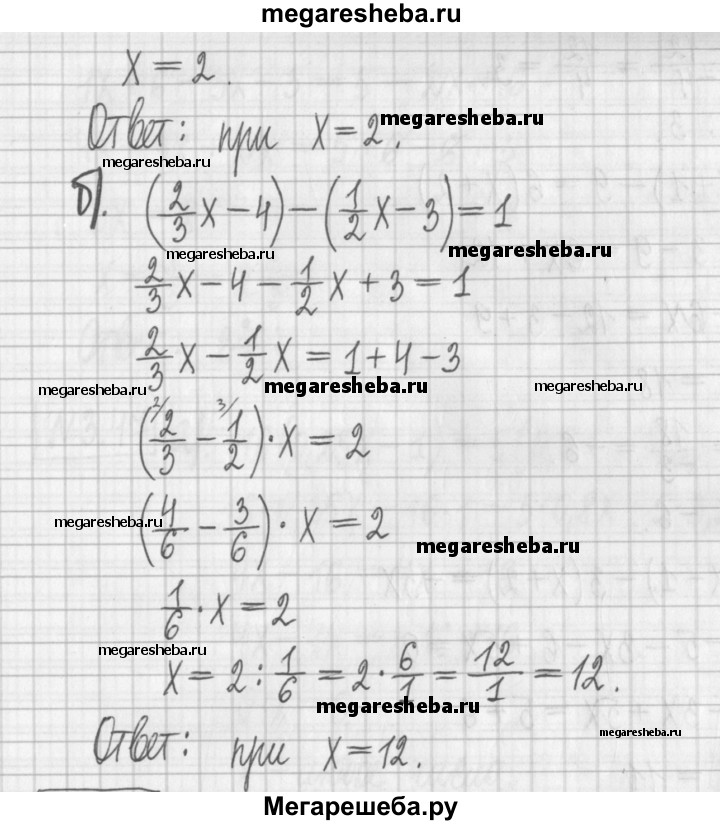 megaresheba.ru
x = 2.
Ответ: при x = 2.
megaresheba.ru
megaresheba.ru
б). (2/3 x − 4) − (1/2 x − 3) = 1
megaresheba.ru
megaresheba.ru
2/3 x − 4 − 1/2 x + 3 = 1
2/3 x − 1/2 x = 1 + 4 − 3
megaresheba.ru
megaresheba.ru
megaresheba.ru
(2/ 2/3 − 3/ 1/2) · x = 2
(4/6 − 3/6) · x = 2
megaresheba.ru
megaresheba.ru
1/6 · x = 2
megaresheba.ru
x = 2 : 1/6 = 2 · 6/1 = 12/1 = 12.
megaresheba.ru
megaresheba.ru
Ответ: при x = 12.
Мегарешеба.ру